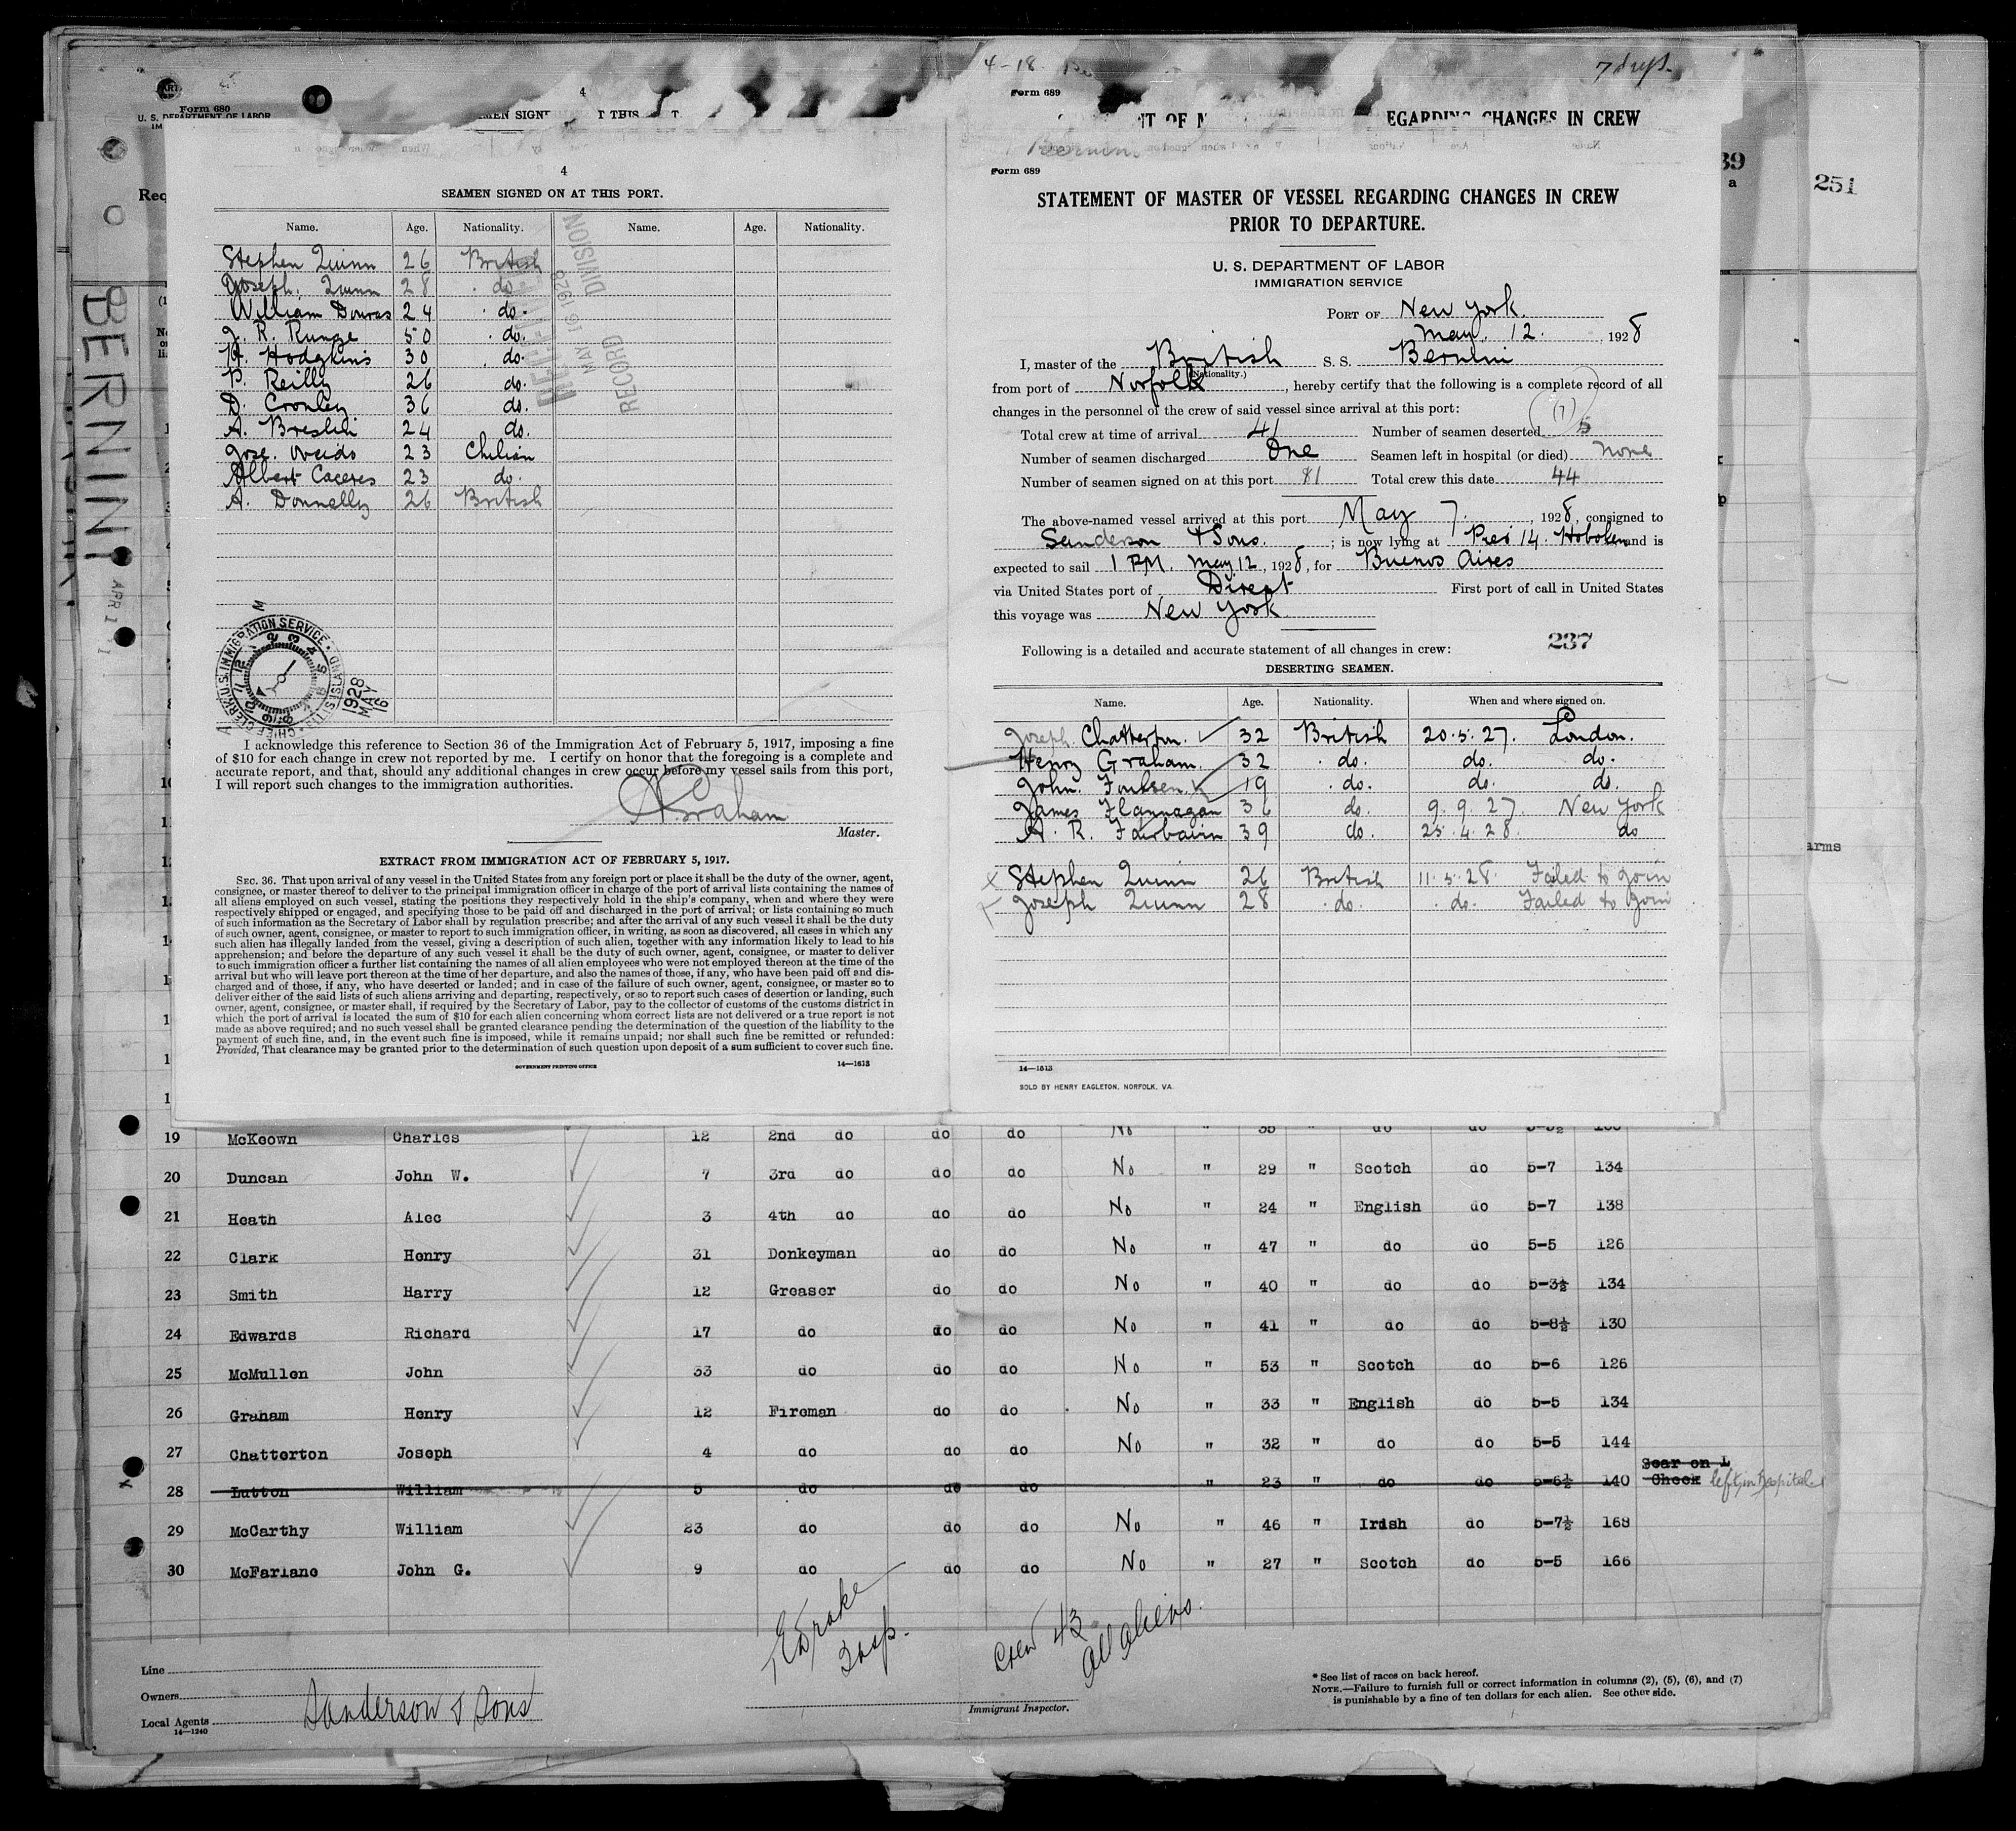 4-18.
7 dys.
Form 680
U. S. DEPARTMENT OF LABOR
4
Form 689
EGARDING CHANGES IN CREW
39
a
251
Req
BERNINI
APR
4
SEAMEN SIGNED ON AT THIS PORT.
Name. Age. Nationality. Name. Age. Nationality.
Stephen Quinn 26 British
Joseph. Quinn 28 do
William Douras 24 do.
J. R. Runge 50 do.
H. Hodgkins 30 do.
P. Reilly 26 do.
D. Cronley 36 do.
A. Breslin 24 do.
Jose. Oveido 23 Chilian
Albert Caceres 23 do.
A. Donnelly 26 British
MAY 16 1928
RECORD DIVISION
CHIEF CLERK U.S. IMMIGRATION SERVICE ELLIS ISLAND
1928 MAY 16
I acknowledge this reference to Section 36 of the Immigration Act of February 5, 1917, imposing a fine
of $10 for each change in crew not reported by me. I certify on honor that the foregoing is a complete and
accurate report, and that, should any additional changes in crew occur before my vessel sails from this port,
I will report such changes to the immigration authorities.
A. Graham
Master.
EXTRACT FROM IMMIGRATION ACT OF FEBRUARY 5, 1917.
SEC. 36. That upon arrival of any vessel in the United States from any foreign port or place it shall be the duty of the owner, agent,
consignee, or master thereof to deliver to the principal immigration officer in charge of the port of arrival lists containing the names of
all aliens employed on such vessel, stating the positions they respectively hold in the ship's company, when and where they were
respectively shipped or engaged, and specifying those to be paid off and discharged in the port of arrival; or lists containing so much
of such information as the Secretary of Labor shall by regulation prescribe; and after the arrival of any such vessel it shall be the duty
of such owner, agent, consignee, or master to report to such immigration officer, in writing, as soon as discovered, all cases in which any
such alien has illegally landed from the vessel, giving a description of such alien, together with any information likely to lead to his
apprehension; and before the departure of any such vessel it shall be the duty of such owner, agent, consignee, or master to deliver
to such immigration officer a further list containing the names of all alien employees who were not employed thereon at the time of the
arrival but who will leave port thereon at the time of her departure, and also the names of those, if any, who have been paid off and dis-
charged and of those, if any, who have deserted or landed; and in case of the failure of such owner, agent, consignee, or master so to
deliver either of the said lists of such aliens arriving and departing, respectively, or so to report such cases of desertion or landing, such
owner, agent, consignee, or master shall, if required by the Secretary of Labor, pay to the collector of customs of the customs district in
which the port of arrival is located the sum of $10 for each alien concerning whom correct lists are not delivered or a true report is not
made as above required; and no such vessel shall be granted clearance pending the determination of the question of the liability to the
payment of such fine, and, in the event such fine is imposed, while it remains unpaid; nor shall such fine be remitted or refunded:
Provided, That clearance may be granted prior to the determination of such question upon deposit of a sum sufficient to cover such fine.
GOVERNMENT PRINTING OFFICE 14—1613
Form 689
STATEMENT OF MASTER OF VESSEL REGARDING CHANGES IN CREW
PRIOR TO DEPARTURE.
U. S. DEPARTMENT OF LABOR
IMMIGRATION SERVICE
PORT OF New York.
May. 12. , 1928
I, master of the British S. S. Bernini
(Nationality.)
from port of Norfolk, hereby certify that the following is a complete record of all
changes in the personnel of the crew of said vessel since arrival at this port:
(7)
Total crew at time of arrival 41 Number of seamen deserted 5
Number of seamen discharged One Seamen left in hospital (or died) None
Number of seamen signed on at this port 11 Total crew this date 44
The above-named vessel arrived at this port May 7. , 1928, consigned to
Sanderson & Sons. ; is now lying at Pier 14. Hoboken and is
expected to sail 1 P.M. May 12, 1928, for Buenos Aires
via United States port of Direct First port of call in United States
this voyage was New York
Following is a detailed and accurate statement of all changes in crew: 237
DESERTING SEAMEN.
Name. Age. Nationality. When and where signed on.
Joseph Chatterton. 32 British 20.5.27. London.
Henry Graham. 32 do. do. do.
John. Foulsen 19 do. do. do.
James Flannagan 36 do. 9.9.27. New York
A. R. Fairbairn 39 do. 25.4.28. do
Stephen Quinn 26 British 11.5.28. Failed to join
Joseph Quinn 28 do. do. Failed to join
14—1613
SOLD BY HENRY EAGLETON, NORFOLK, VA.
arms
19 McKeown Charles 12 2nd do do do No " 35 " do do 5-5½
20 Duncan John W. 7 3rd do do do No " 29 " Scotch do 5-7 134
21 Heath Alec 3 4th do do do No " 24 " English do 5-7 138
22 Clark Henry 31 Donkeyman do do No " 47 " do do 5-5 126
23 Smith Harry 12 Greaser do do No " 40 " do do 5-3½ 134
24 Edwards Richard 17 do do do No " 41 " do do 5-8½ 130
25 McMullen John 33 do do do No " 53 " Scotch do 5-6 126
26 Graham Henry 12 Fireman do do No " 33 " English do 5-5 134
27 Chatterton Joseph 4 do do do No " 32 " do do 5-5 144
28 Lutton William 5 do do do " 23 " do do 5-6½ 140 Scar on L Cheek left in hospital
29 McCarthy William 23 do do do No " 46 " Irish do 5-7½ 168
30 McFarlane John G. 9 do do do No " 27 " Scotch do 5-5 166
Drake
Insp.
Crew 43
All aliens.
Line
Owners
Local Agents Sanderson & Sons
14—1240
Immigrant Inspector.
* See list of races on back hereof.
NOTE.—Failure to furnish full or correct information in columns (2), (5), (6), and (7)
is punishable by a fine of ten dollars for each alien. See other side.